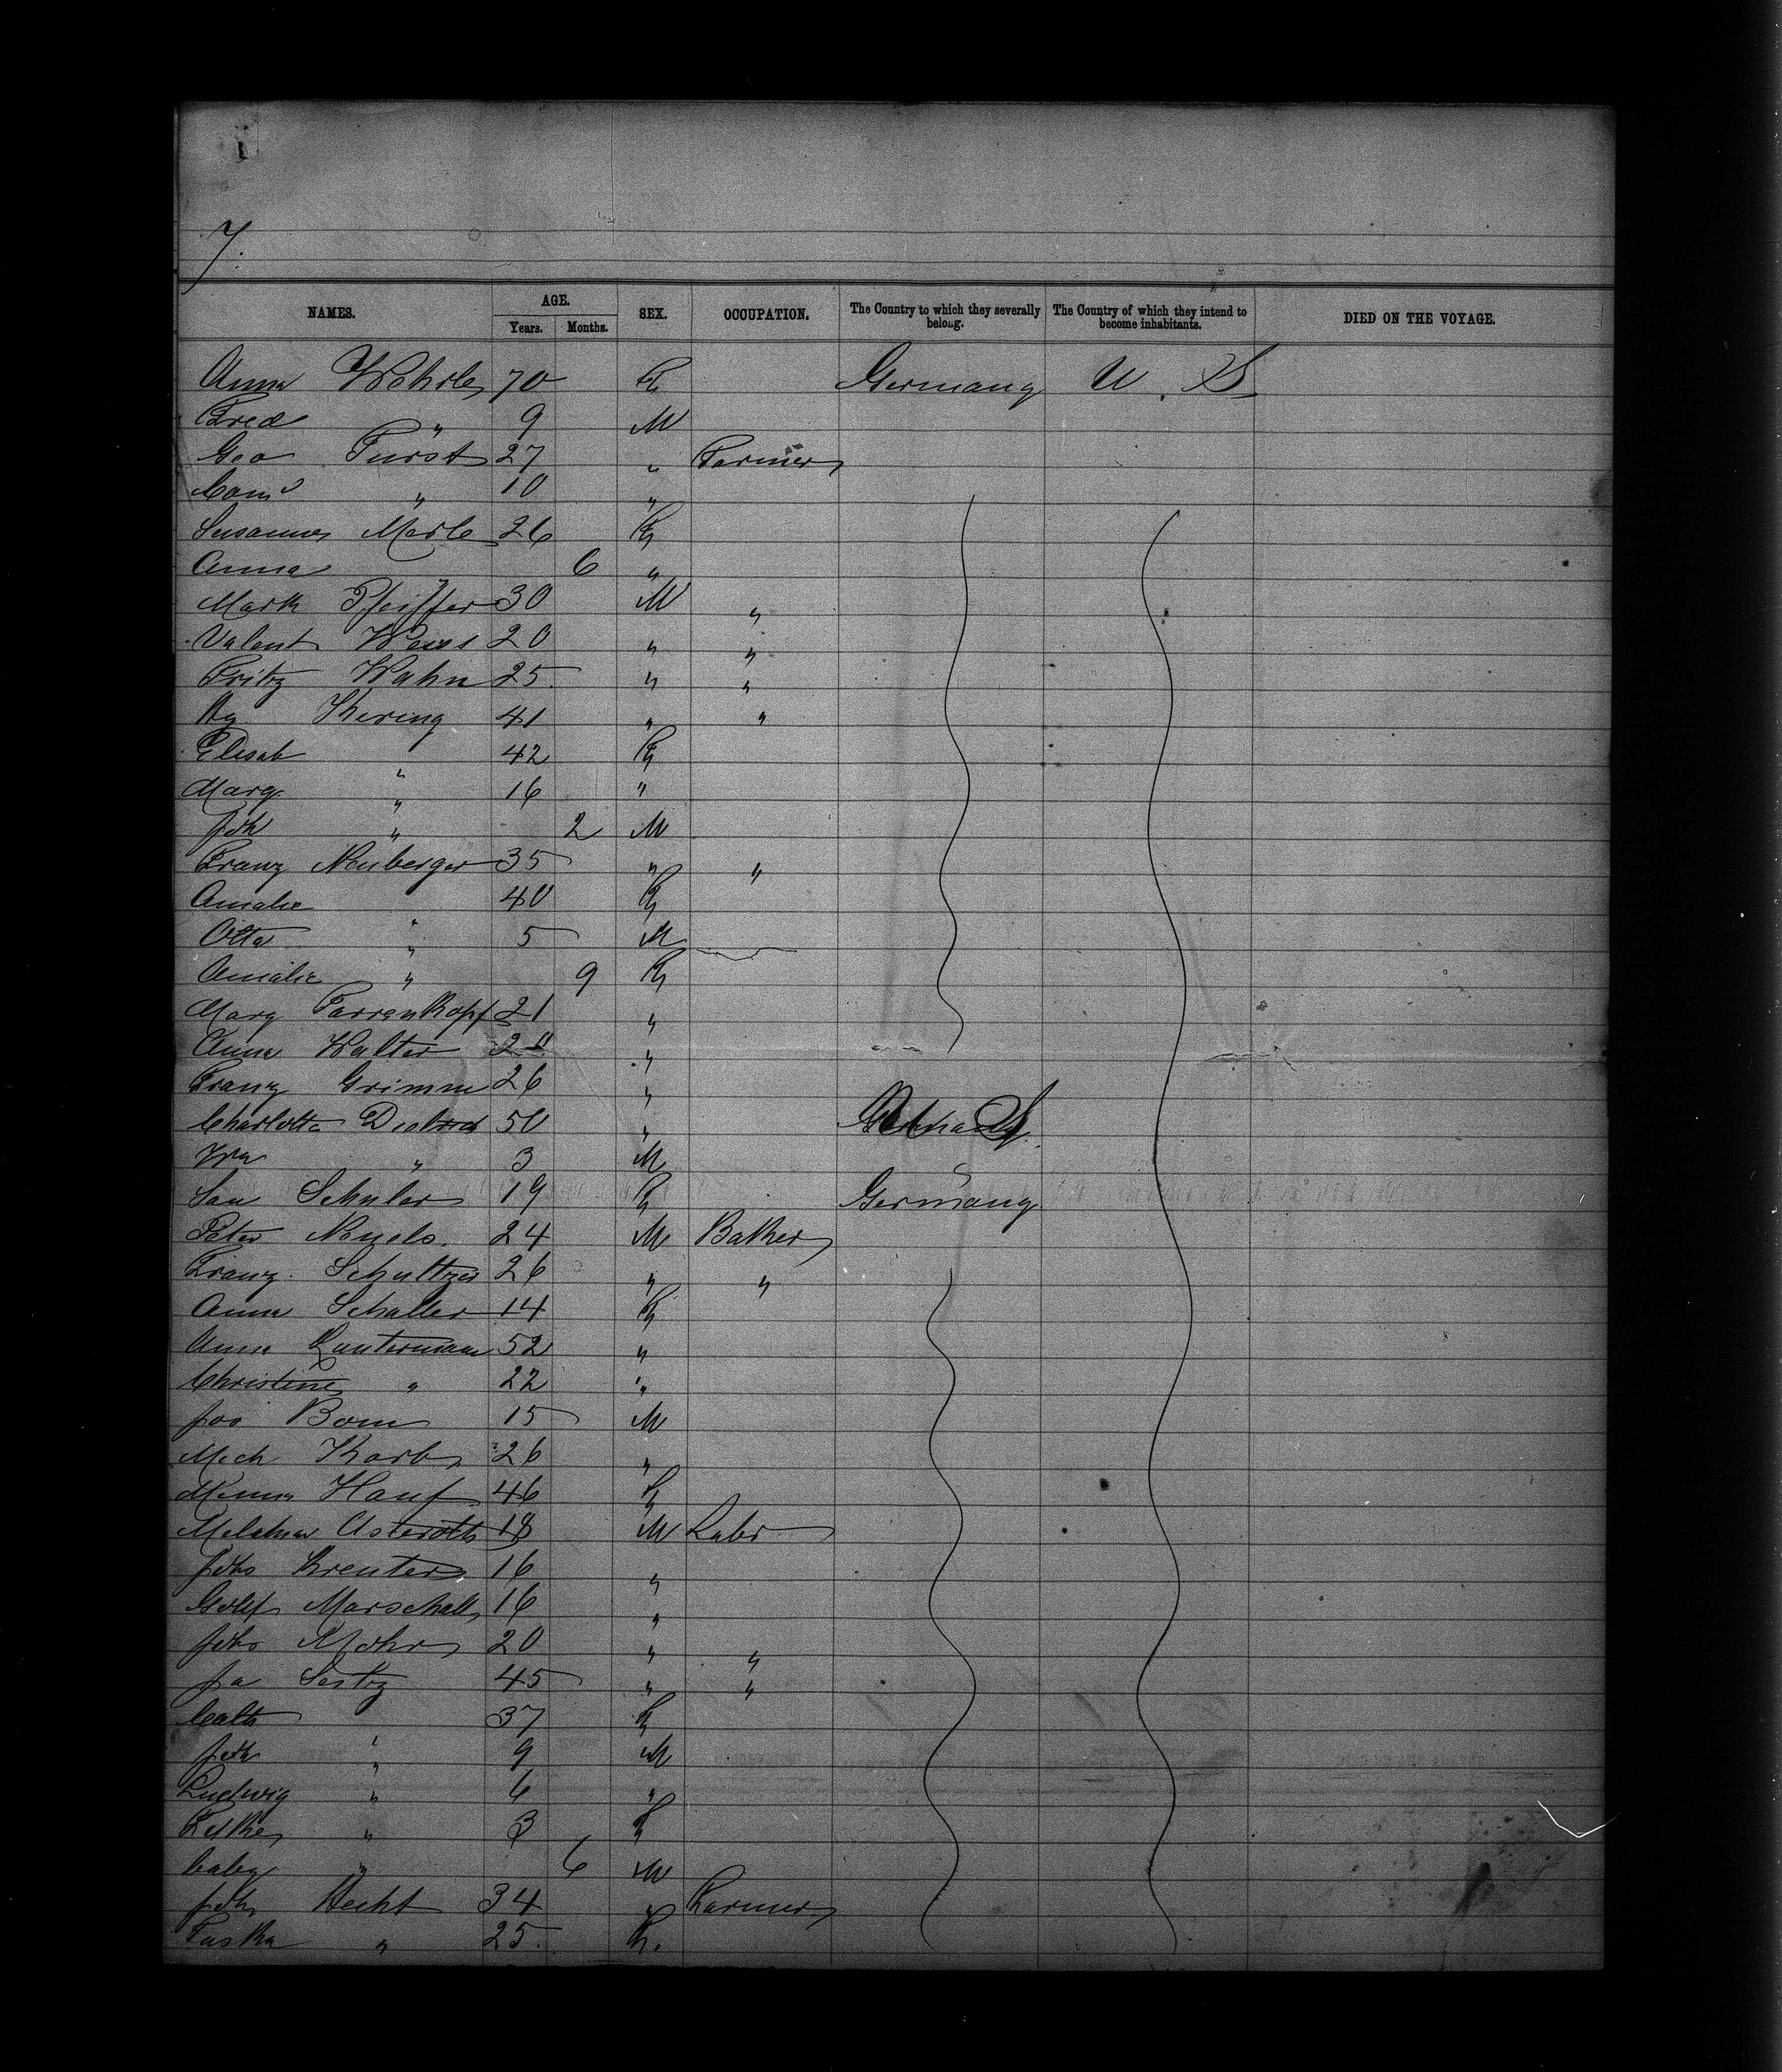 7.
NAMES. AGE. SEX. OCCUPATION. The Country to which they severally belong. The Country of which they intend to become inhabitants. DIED ON THE VOYAGE.
Years. Months.
Anna Wohrle 70 F Germany U. S.
Fred " 9 M
Geo Furst 27 " Farmer
" 10 "
Susanna Merle 26 F
Anna 6 "
Mark Pfeiffer 30 M "
Valent Weiss 20 " "
Fritz Wahn 25 " "
Hy Kering 41 " "
Elisab " 42 F
Marg " 16 "
Joh " 2 M
Franz Neuberger 35 " "
Amalie " 40 F
Otto " 5 M
Amalie " 9 F
Marg Farrenkopf 21 "
Anna Walter "
Franz Grimm 26 "
Charlotta 50 "
Wm " 3 M
Schuler 19 F Germany
Peter 24 M Baker
Franz Schultzer 26 " "
Anna Schaller 14 F
Anna Lauterman 52 "
Christine " 22 "
Jos Bom 15 M
Mich Karb 26 "
Minna Hauf 46 F
Asteroth 18 M Labr
Johs Kreuter 16 "
Marschall 16 "
Johs Mohr 20 " "
Ja Seitz 45 " "
37 F
Joh " 9 M
Ludwig " 6 "
" 3 F
baby " 6 M
Joh Hecht 34 " Farmer
" 25 F.